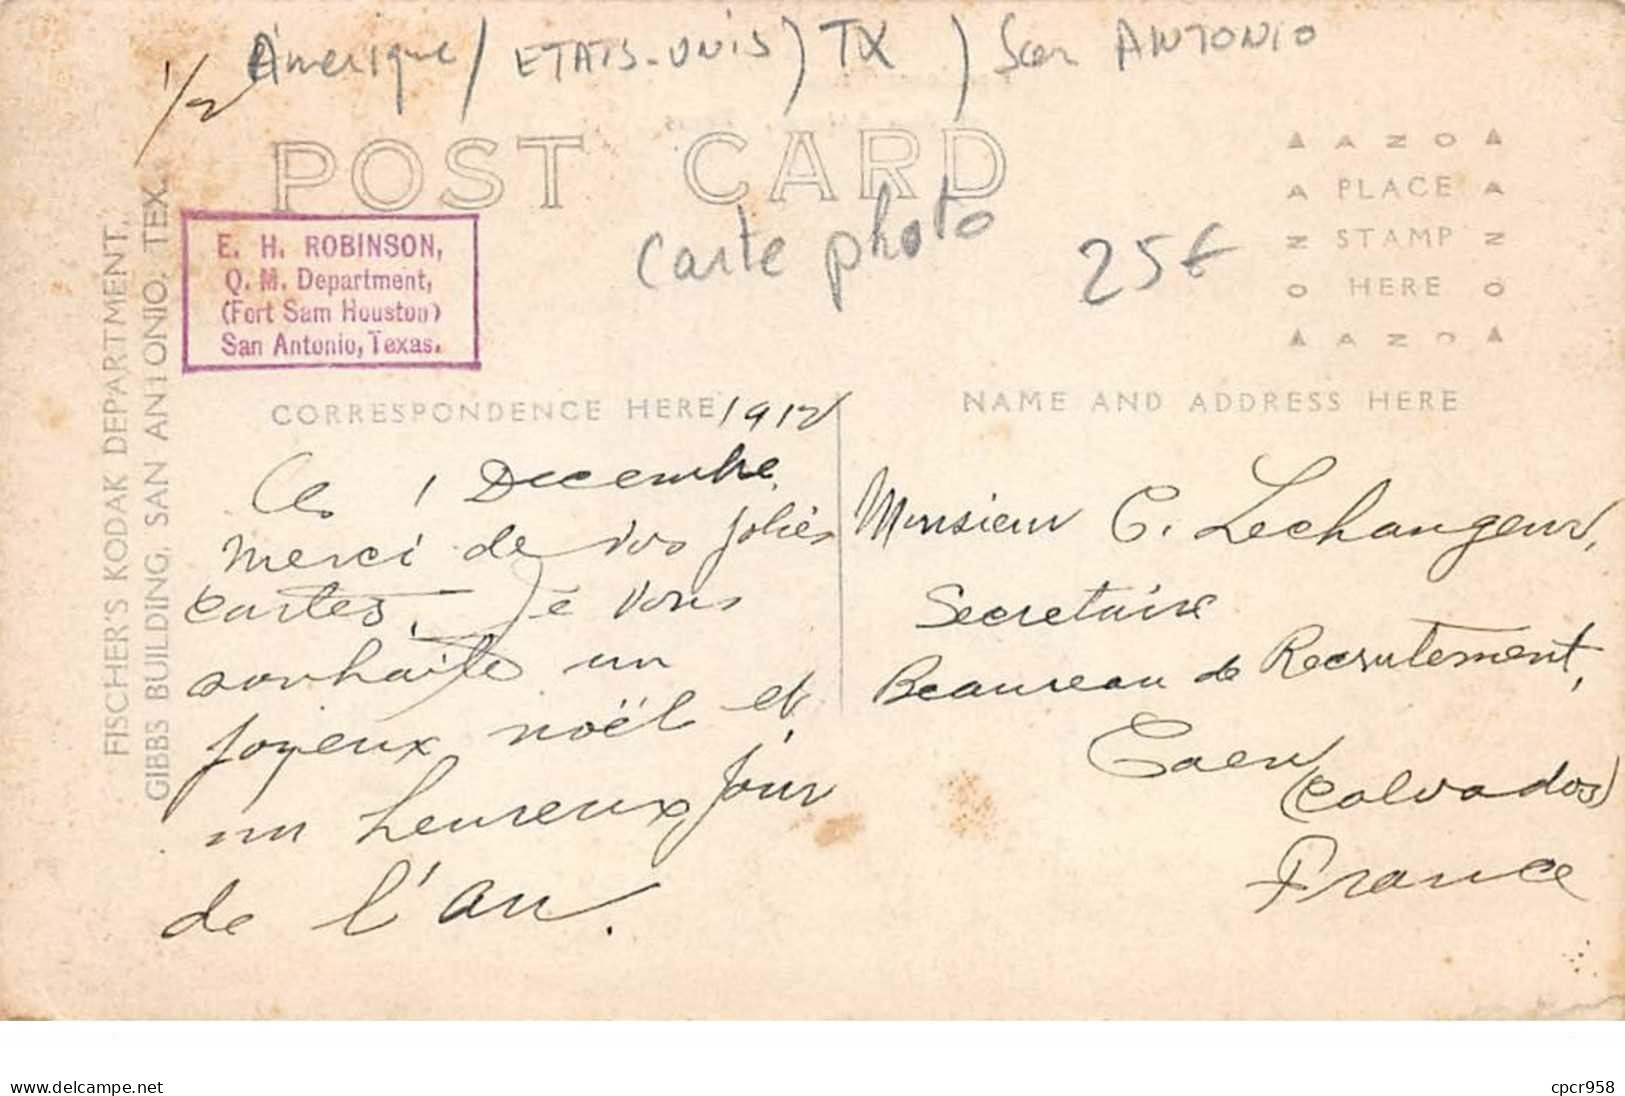 1/2
Amerique / ETATS-UNIS / TX / San ANTONIO
POST CARD
carte photo
25€
AZO
PLACE
STAMP
HERE
AZO
FISCHER'S KODAK DEPARTMENT,
GIBBS BUILDING, SAN ANTONIO, TEX.
E. H. ROBINSON,
Q. M. Department,
(Fort Sam Houston)
San Antonio, Texas.
CORRESPONDENCE HERE
NAME AND ADDRESS HERE
1912
Ce 1 Decembre
Merci de vos jolies
cartes, Je vous
souhaite un
joyeux noël et
un heureux jour
de l'an.
Monsieur C. Lechangeur,
Secretaire
Beaureau de Recrutement,
Caen
(Calvados)
France
delcampe.net
cpcr958